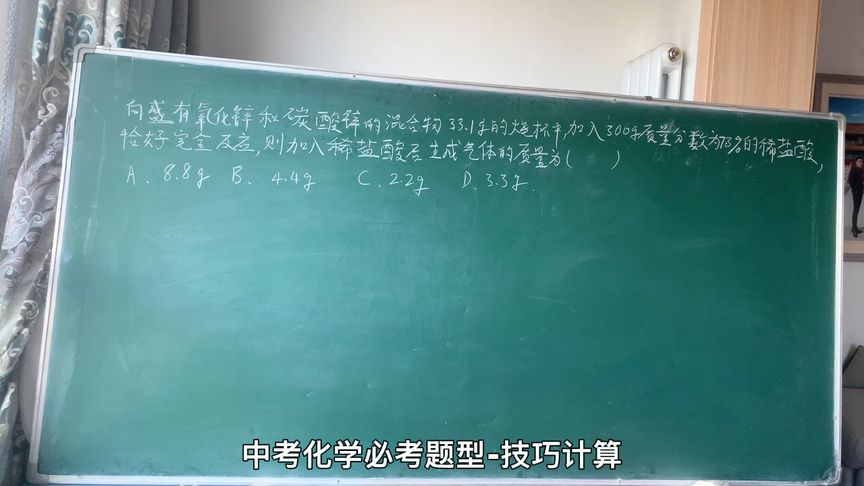 向盛有氧化锌和碳酸锌的混合物33.1g的烧杯中,加入300g质量分数为7.3%的稀盐酸,
恰好完全反应,则加入稀盐酸后生成气体的质量为( )
A、8.8g B、4.4g C、2.2g D、3.3g.
中考化学必考题型-技巧计算